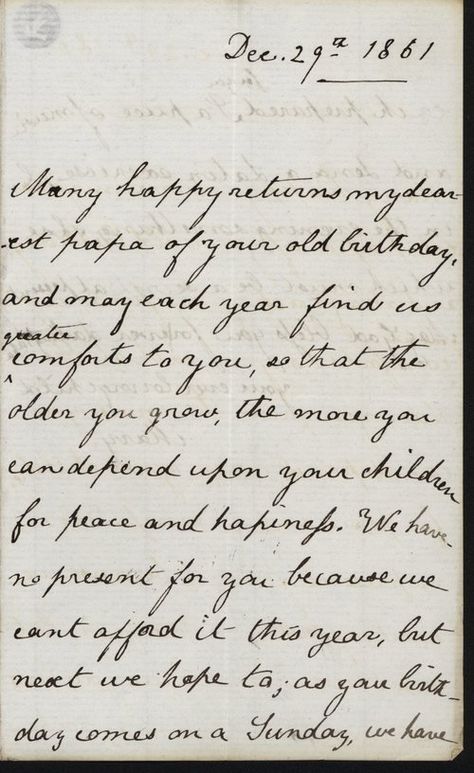 Dec. 29th 1861
Many happy returns my dear-
-est papa of your old birthday,
and may each year find us
greater
comforts to you, so that the
older you grow, the more you
can depend upon your children
for peace and hapiness. We have
no present for you because we
cant afford it this year, but
next we hope to; as you birth-
day comes on a Sunday, we have